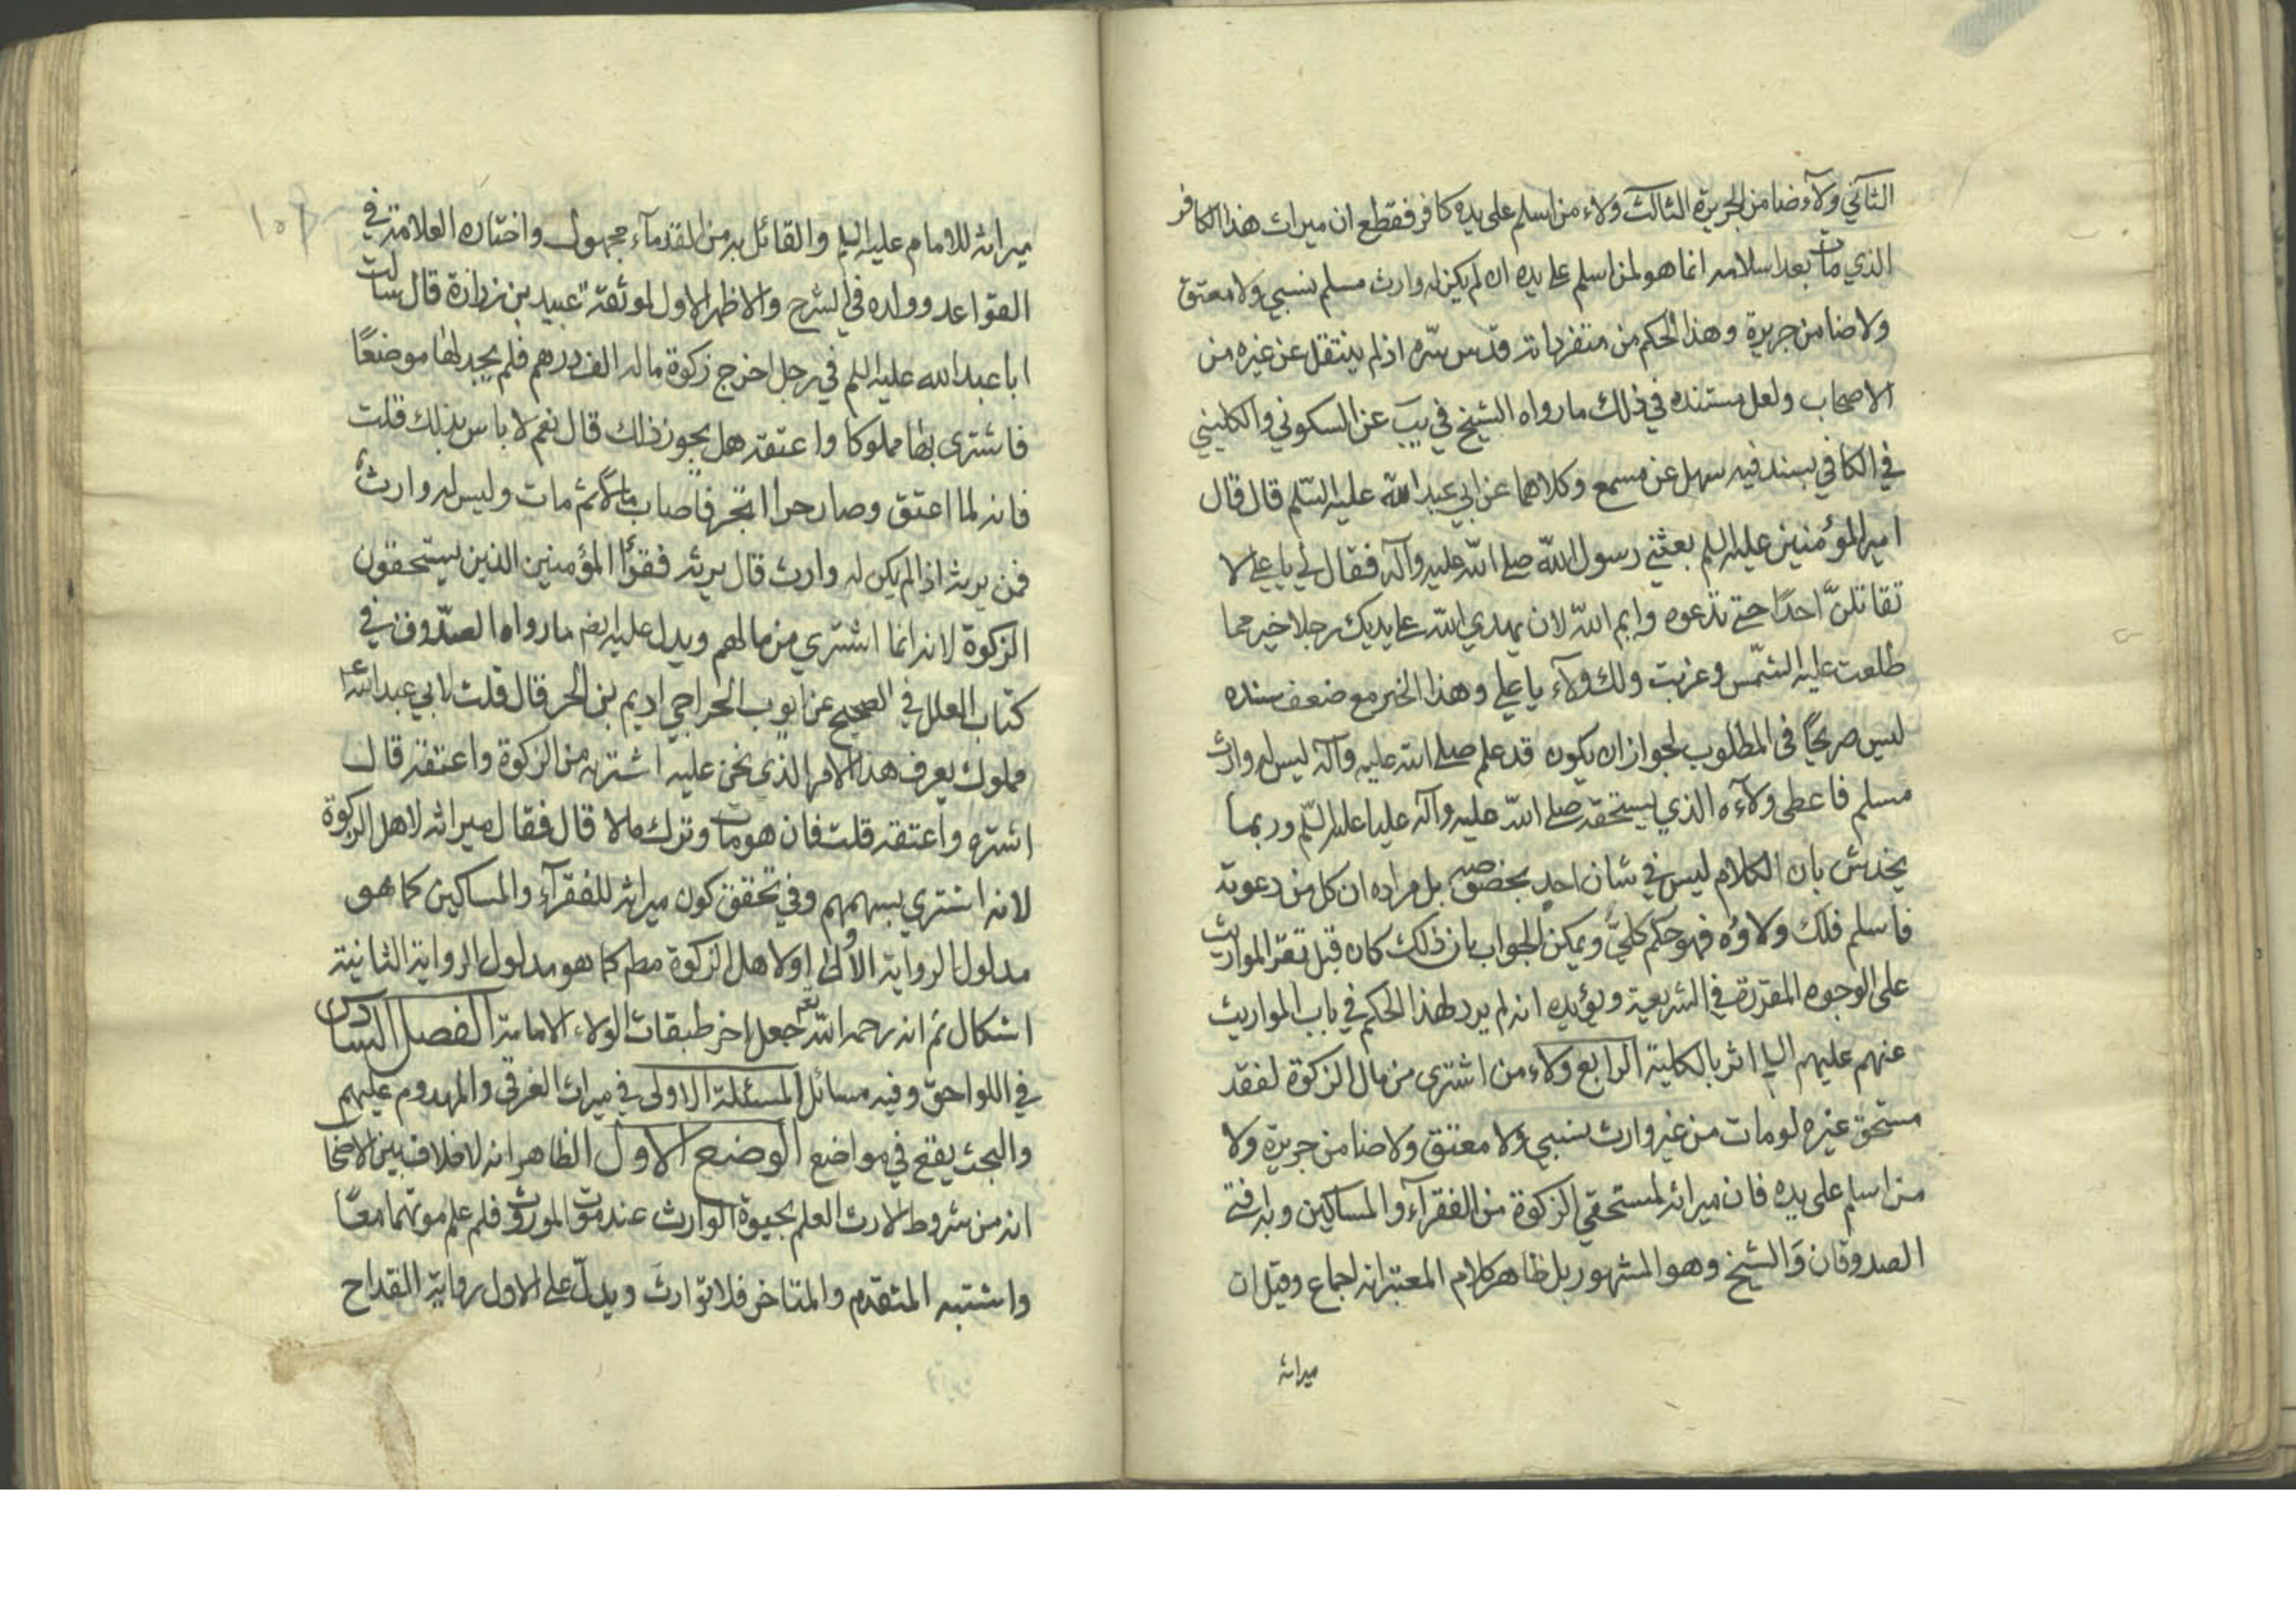 الثاني ولآء ضامن الجريرة الثالث ولاء من اسلم على يده كافر فقطع ان ميراث هذا الكافر
الذي مات بعد اسلامه انما هو لمن اسلم على يده ان لم يكن له وارث مسلم نسبي ولا معتق
ولا ضامن جريرة وهذا الحكم من متفرداته قدس سّره اذ لم ينتقل عن غيره من
الاصحاب ولعل مستنده في ذلك ما رواه الشيخ في يب عن السكوني والكليني
في الكافي بسند فيه سهل عن مسمع وكلاهما عن ابي عبد الله عليه السّلم قال قال
امير المؤمنين عليه السلم بعثني رسول الله صلى الله عليه وآله فقال لي يا علي لا
تقاتلنّ احدًا حتى تدعوه وايم اللّه لان يهدي الله على يديك رجلا خير مما
طلعت عليه الشمّس وغربت ولك ولآء يا علي وهذا الخبر مع ضعف سنده
ليس صريحًا في المطلوب لجواز ان يكون قد علم صلى الله عليه وآله ليس له وارث
مسلم فاعطى ولآءه الذي يستحقه صلى اللّه عليه وآله عليا عليه السّلم وربما
يخدش بان الكلام ليس في شان احدٍ بخصوصه بل مراده ان كل من دعوته
فاسلم فلك ولاؤه فهو حكم كليّ ويمكن الجواب بان ذلك كان قبل تقرر المواريث
على الوجوه المقررة في الشريعة ويؤيده انه لم يرد لهذا الحكم في باب المواريث
عنهم عليهم السلم اثر بالكلية الرابع ولاء من اشترى من مال الزكوة لفقد
مستحق غيره لو مات من غير وارث نسبي ولا معتق ولا ضامن جريرة ولا
من اسلم على يده فان ميراثه لمستحقي الزكوة من الفقرآء والمساكين وبه افتى
الصدوقان وَالشيخ وهو المشهور بل ظاهر كلام المعتبر انه اجماع وقيل ان
ميراثه
ميراثه للامام عليه السلم والقائل به من القدمآء مجهول واختاره العلامة في
القواعد وولده في الشرح والاظهر الاول لموثقة عبيد بن زرارة قال سالت
ابا عبد الله عليه السلم في رجل اخرج زكوة ماله الف درهم فلم يجد لها موضعًا
فاشترى بها مملوكا واعتقه هل يجوز ذلك قال نعم لا باس بذلك قلت
فانه لما اعتق وصار حرا اتجر فاصاب مالًا ثم مات وليس له وارث
فمن يرثه اذا لم يكن له وارث قال يرثه فقرآء المؤمنين الذين يستحقون
الزكوة لانه انما اشتري من مالهم ويدل عليه ايضم ما رواه الصدّوق في
كتاب العلل في الصحيح عن ايوب الحر اخي اديم بن الحر قال قلت لابي عبد الله ع
مملوك يعرف هذا الامر الذي نحن عليه اشتريه من الزكوة واعتقه قال
اشتره واعتقه قلت فان هو مات وترك مالا قال فقال ميراثه لاهل الزكوة
لانه اشتري بسهمهم وفي تحقق كون ميراثه للفقرآء والمساكين كما هو
مدلول الرواية الأولى او لاهل الزكوة مطم كما هو مدلول الرواية الثانية
اشكال ثم انه رحمه الله تعم جعل اخر طبقات الولاء الامامة الفصل السادس
في اللواحق وفيه مسائل المسئلة الاولى في ميراث الغرقى والمهدوم عليهم
والبحث يقع في مواضع الوضع الاول الظاهر انه لا خلاف بين الاصحا
انه من شروط الارث العلم بحيوة الوارث عند موت المورث فلم علم موتهما معًا
واشتبه المتقدم والمتاخر فلا توارث ويدلّ على الاول رواية القداح